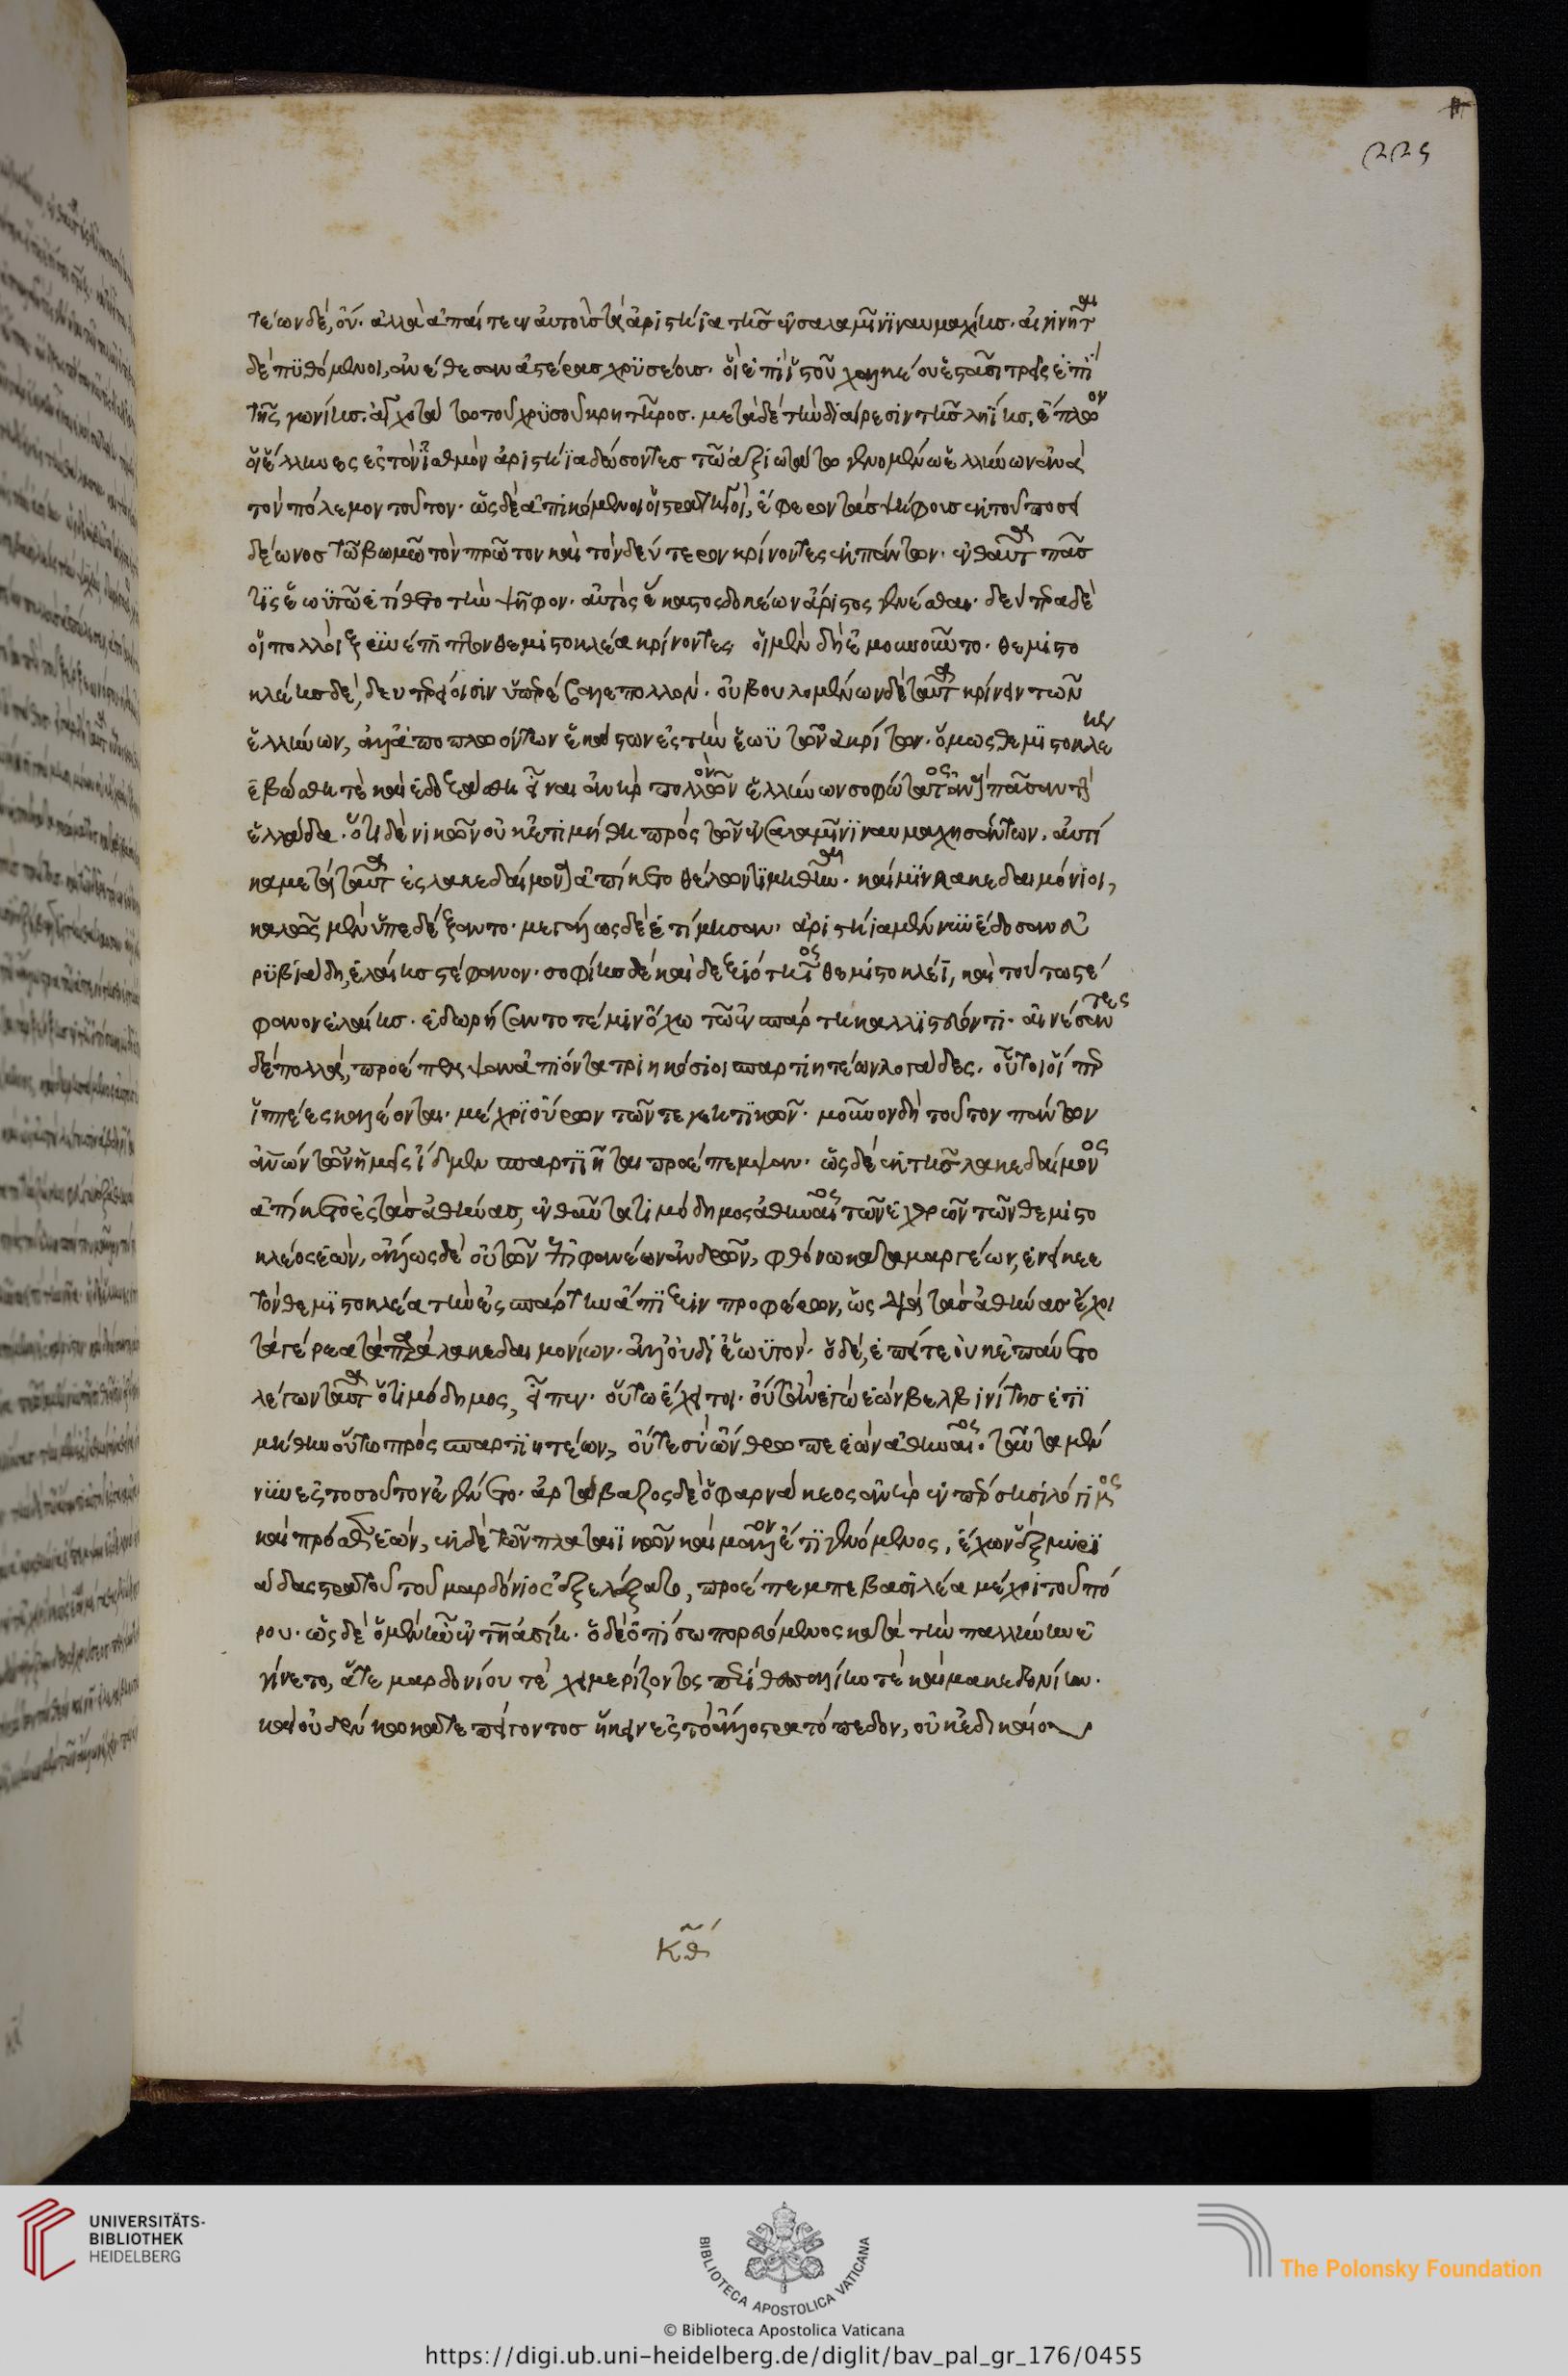 τέων δέ, οὔ. ἀλλὰ ἀπαίτεεν αὐτοὺς τὰ ἀριστήϊα τῆς ἐν σαλαμῖνι ναυμαχίης. αἰγινῆται
δὲ πυθόμενοι, ἀνέθεσαν ἀστέρας χρυσέους. οἳ ἐπὶ ἱστοῦ χαλκέου ἑστᾶσι τρεῖς ἐπὶ
τῆς γωνίης. ἀγχοτάτω τοῦ χρυσοῦ κρητῆρος. μετὰ δὲ τὴν διαίρεσιν τῆς ληΐης, ἔπλεον
οἱ ἕλληνες ἐς τὸν ἰσθμὸν ἀριστήϊα δώσοντες τῶ ἀξιωτάτω γενομένω ἑλλήνων ἀνὰ
τὸν πόλεμον τοῦτον. ὡς δὲ ἀπικόμενοι οἱ στρατηγοὶ, ἔφερον τὰς ψήφους ἐκ τοῦ ποσει
δέωνος τῶ βωμῶ τὸν πρῶτον καὶ τὸν δεύτερον κρίνοντες ἐκ πάντων. ἐνθαῦτα πᾶς
τις ἑωυτῶ ἐτίθετο τὴν ψῆφον. αὐτὸς ἕκαστος δοκέων ἄριστος γενέσθαι. δεύτερα δὲ
οἱ πολλοὶ ξυνέπιπτον θεμιστοκλέα κρίνοντες οἱ μὲν δὴ ἐμουνοῦντο. θεμιστο
κλέης δέ, δευτερείοισιν ὑπερέβαλε πολλόν. οὐ βουλομένων δὲ ταῦτα κρίνειν τῶν
ἑλλήνων, ἀλλὰ ἀποπλεόντων ἑκάστων ἐς τὴν ἑωυτῶν ἀκρίτων. ὅμως θεμιστοκλέης
ἐβώσθη τὲ καὶ ἐδοξώθη εἶναι ἀνὴρ πολλὸν ἑλλήνων σοφώτατος ἀνὰ πᾶσαν τὴν
ἑλλάδα. ὅτι δὲ νικῶν οὐκ ἐτιμήθη πρὸς τῶν ἐν σαλαμῖνι ναυμαχησάντων. αὐτί
κα μετὰ ταῦτα ἐς λακεδαίμονα ἀπίκετο θέλων τιμηθῆναι. καί μιν λακεδαιμόνιοι,
καλῶς μὲν ὑπεδέξαντο. μεγάλως δὲ ἐτίμησαν. ἀριστήϊα μέν νυν ἔδοσαν εὐ
ρυβιάδη, ἐλαίης στέφανον. σοφίης δὲ καὶ δεξιότητος θεμιστοκλέϊ, καὶ τούτω στέ
φανον ἐλαίης. ἐδωρήσαντο τέ μιν ὄχω τῶ ἐν σπάρτη καλλιστεύοντι. αἰνέσαντες
δὲ πολλά, προέπεμψαν ἀπιόντα τριηκόσιοι σπαρτιητέων λογάδες. οὗτοι οἵπερ
ἱππέες καλέονται. μέχρι οὔρων τῶν τεγεητικῶν. μοῦνον δὴ τοῦτον πάντων
ἀνθρώπων τῶν ἡμεῖς ἴδμεν σπαρτιῆται προέπεμψαν. ὡς δὲ ἐκ τῆς λακεδαίμονος
ἀπίκετο ἐς τὰς ἀθήνας, ἐνθαῦτα τιμόδημος ἀθηναῖος τῶν ἐχθρῶν τῶν θεμιστο
κλέος ἐών, ἄλλως δὲ οὐ τῶν ἐπιφανέων ἀνδρῶν, φθόνω καταμαργέων, ἐνείκεε
τὸν θεμιστοκλέα τὴν ἐς σπάρτην ἄπιξιν προφέρων, ὡς διὰ τὰς ἀθήνας ἔχοι
τὰ γέρεα τὰ παρὰ λακεδαιμονίων. ἀλλ' οὐ δι' ἑωυτόν. ὁ δέ, ἐπείτε οὐκ ἐπαύετο
λέγων ταῦτα ὁ τιμόδημος, εἶπεν. οὕτω ἔχει τοι. οὔτ' ἂν ἐγὼ ἐὼν βελβινίτης ἐτι
μήθην οὕτω πρὸς σπαρτιητέων, οὔτε σὺ ὤνθρωπε ἐὼν ἀθηναῖος. ταῦτα μέν
νυν ἐς τοσοῦτον ἐγένετο. ἀρτάβαζος δὲ ὁ φαρνάκεος ἀνὴρ ἐν πέρσησι λόγιμος
καὶ πρόσθεν ἐών, ἐκ δὲ τῶν πλαταιϊκῶν καὶ μᾶλλον ἔτι γενόμενος, ἔχων ἓξ μυρι
άδας στρατοῦ τοῦ μαρδόνιος ἐξελέξατο, προέπεμπε βασιλέα μέχρι τοῦ πό
ρου. ὡς δὲ ὁ μὲν ἦν ἐν τῆ ἀσίη. ὁ δὲ ὀπίσω πορευόμενος κατὰ τὴν παλλήνην ἐ
γίνετο, ἅτε μαρδονίου τὲ χειμερίζοντος περὶ θεσσαλίην τὲ καὶ μακεδονίην.
καὶ οὐδέν κω κατεπείγοντος ἥκειν ἐς τὸ ἄλλο στρατόπεδον, οὐκ ἐδικαίου
κθ
UNIVERSITÄTS-
BIBLIOTHEK
HEIDELBERG
BIBLIOTECA APOSTOLICA VATICANA
The Polonsky Foundation
© Biblioteca Apostolica Vaticana
https://digi.ub.uni-heidelberg.de/diglit/bav_pal_gr_176/0455